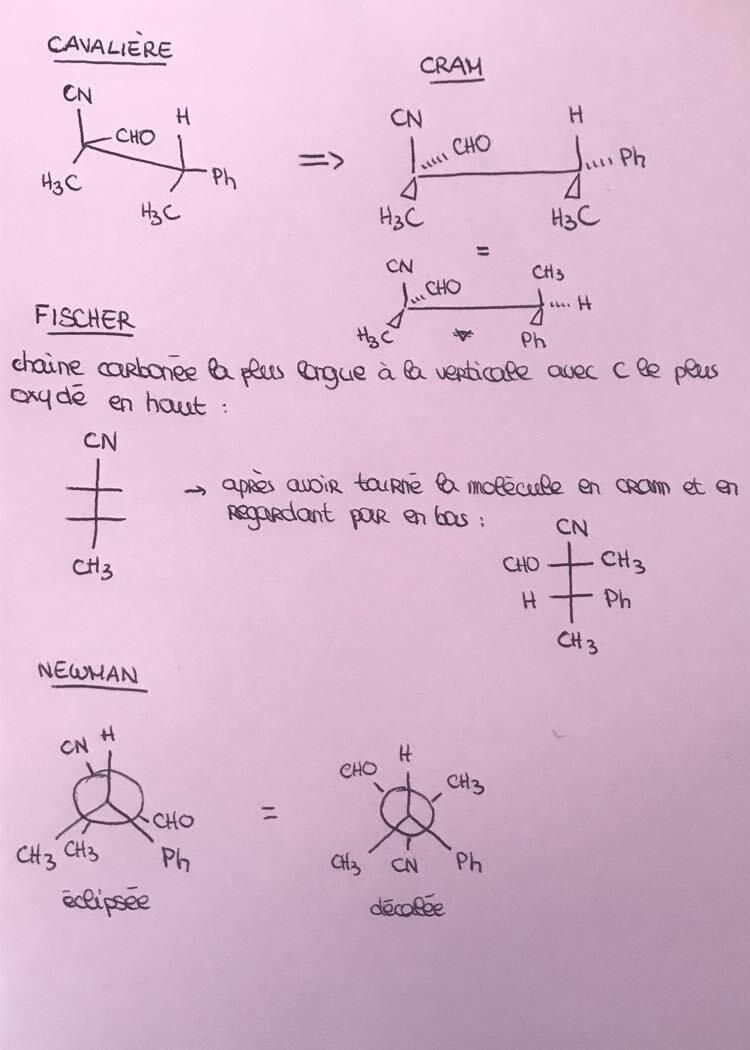 CAVALIÈRE
CN
H
CHO
H₃C
H₃C
Ph
=>
CRAM
CN
H
CHO
Ph
H₃C
H₃C
=
CN
CHO
CH₃
H
H₃C
Ph
FISCHER
chaîne carbonée la plus longue à la verticale avec C le plus
oxydé en haut :
CN
CH₃
→ après avoir tourné la molécule en cram et en
regardant par en bas :
CN
CHO CH₃
H Ph
CH₃
NEWMAN
CN H
CHO
CH₃ CH₃ Ph
éclipsée
=
H
CHO CH₃
CH₃ CN Ph
décalée